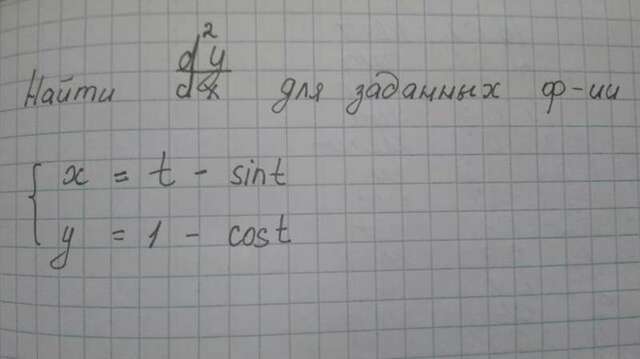 Найти d²y/dx для заданных ф-ии
{ x = t - sint
y = 1 - cost